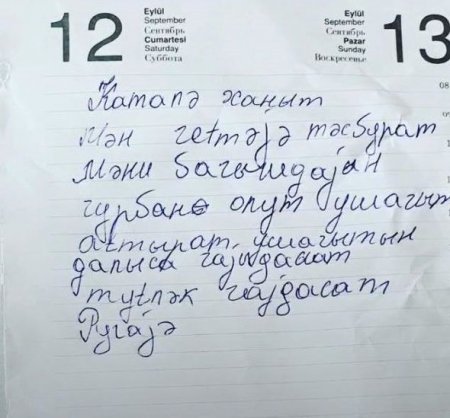 12
Eylül
September
Сентябрь
Cumartesi
Saturday
Суббота
Eylül
September
Сентябрь
Pazar
Sunday
Воскресенье
13
08
Каталә ханыт
Мән гетмәјә мәсбурат
Мәни бағышлајан
гурбан олут ушағыт
ахтырат, ушағытын
далыса гајыдасат
мүтләк гајдасат
Ругајә